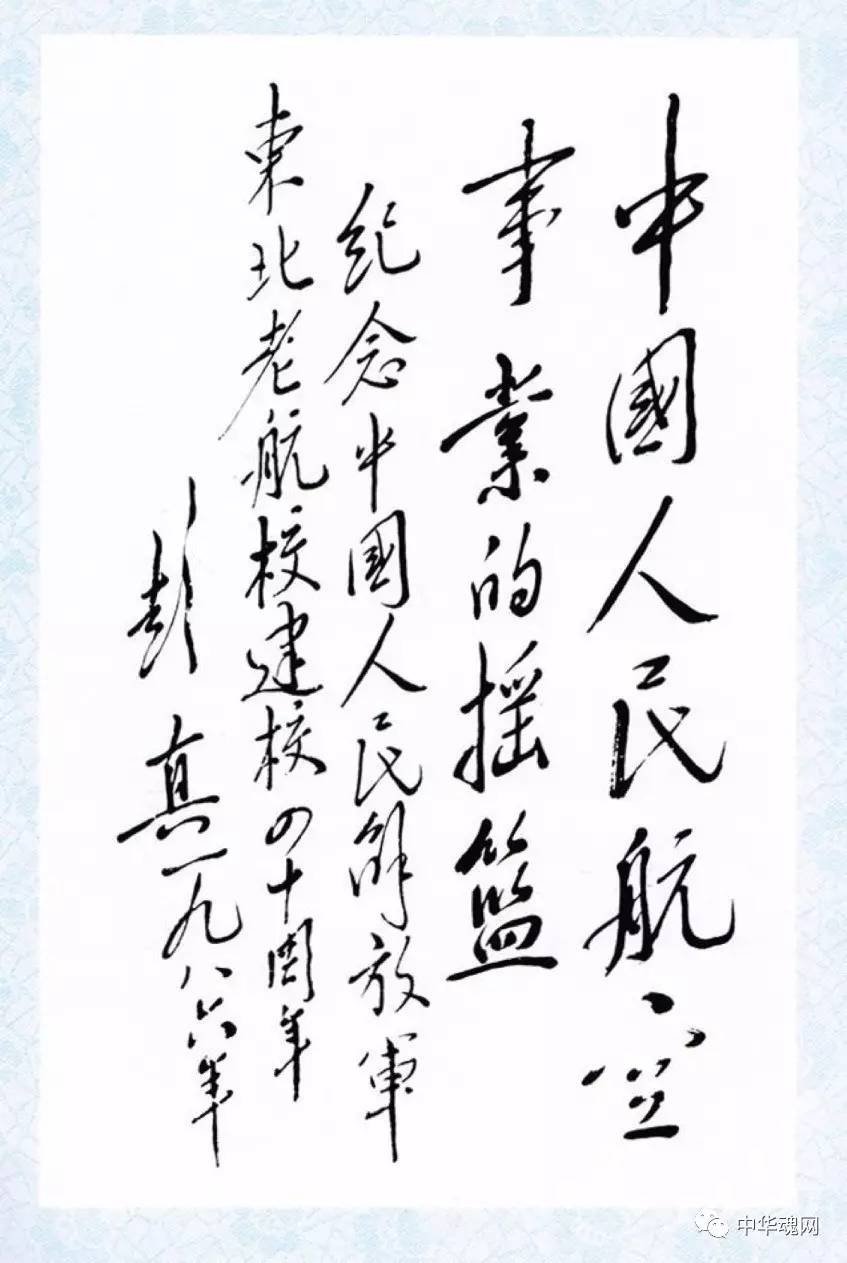 中國人民航空
事業的摇籃
纪念中國人民解放軍
東北老航校建校四十周年
彭真一九八六年
中华魂网